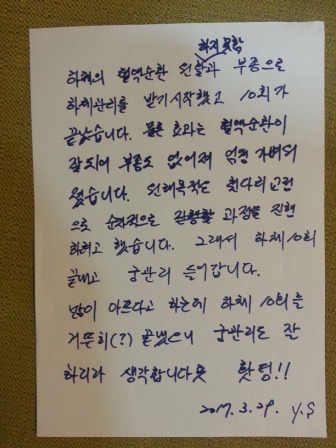 하지 못학
하체의 혈액순환 원활과 부종으로
하체관리를 받기 시작했고 10회가
끝났습니다. 물론 효과는 혈액순환이
잘되어 부종도 없어져 엄청 가벼워
졌습니다. 원래목적도 휜다리교정
으로 순차적으로 진행할 과정을 진행
하려고 했습니다. 그래서 하체 10회
끝내고 궁관리 들어갑니다.
많이 아프다고 하는데 하체 10회를
거뜬히(?) 끝냈으니 궁관리도 잘
하리라 생각합니다 홧팅!!
2017.3.29. y.S